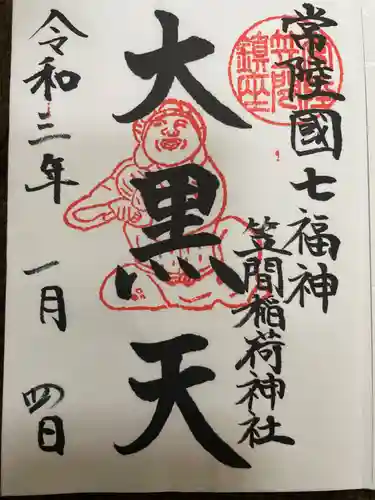 常陸國七福神
笠間稲荷神社
大黒天
令和三年一月四日